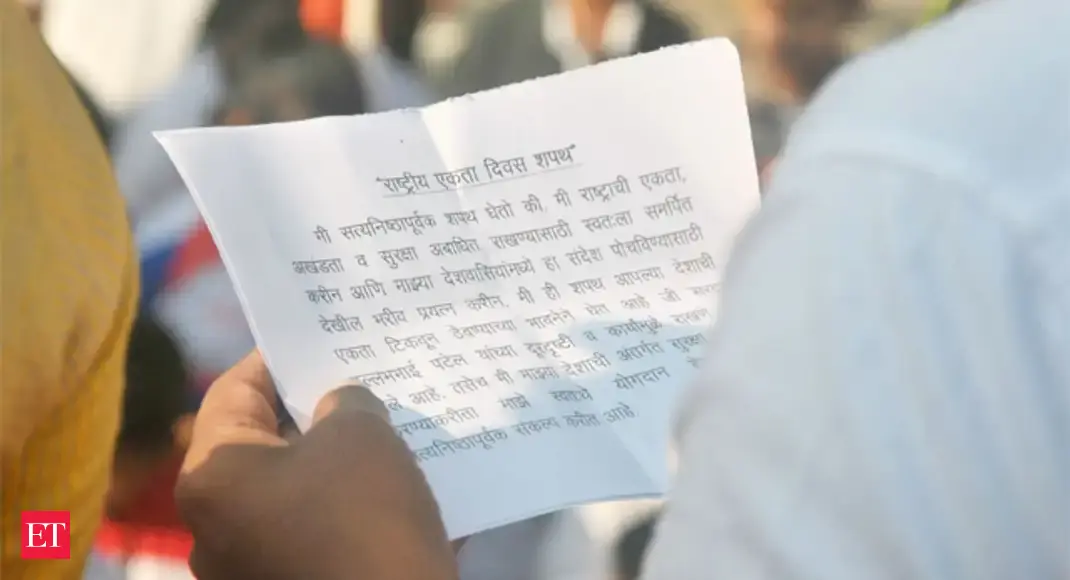 "राष्ट्रीय एकता दिवस शपथ"
मी सत्यनिष्ठापूर्वक शपथ घेतो की, मी राष्ट्राची एकता,
अखंडता व सुरक्षा अबाधित राखण्यासाठी स्वतःला समर्पित
करीन आणि माझ्या देशवासियांमध्ये हा संदेश पोचविण्यासाठी
देखील भरीव प्रयत्न करीन. मी ही शपथ आपल्या देशाची
एकता टिकवून ठेवण्याच्या भावनेने घेत आहे जी
पटेल यांच्या दूरदृष्टी व कार्यामुळे
आहे. तसेच मी माझ्या देशाची अंतर्गत
माझे स्वतःचे योगदान
सत्यनिष्ठापूर्वक संकल्प करीत आहे.
ET